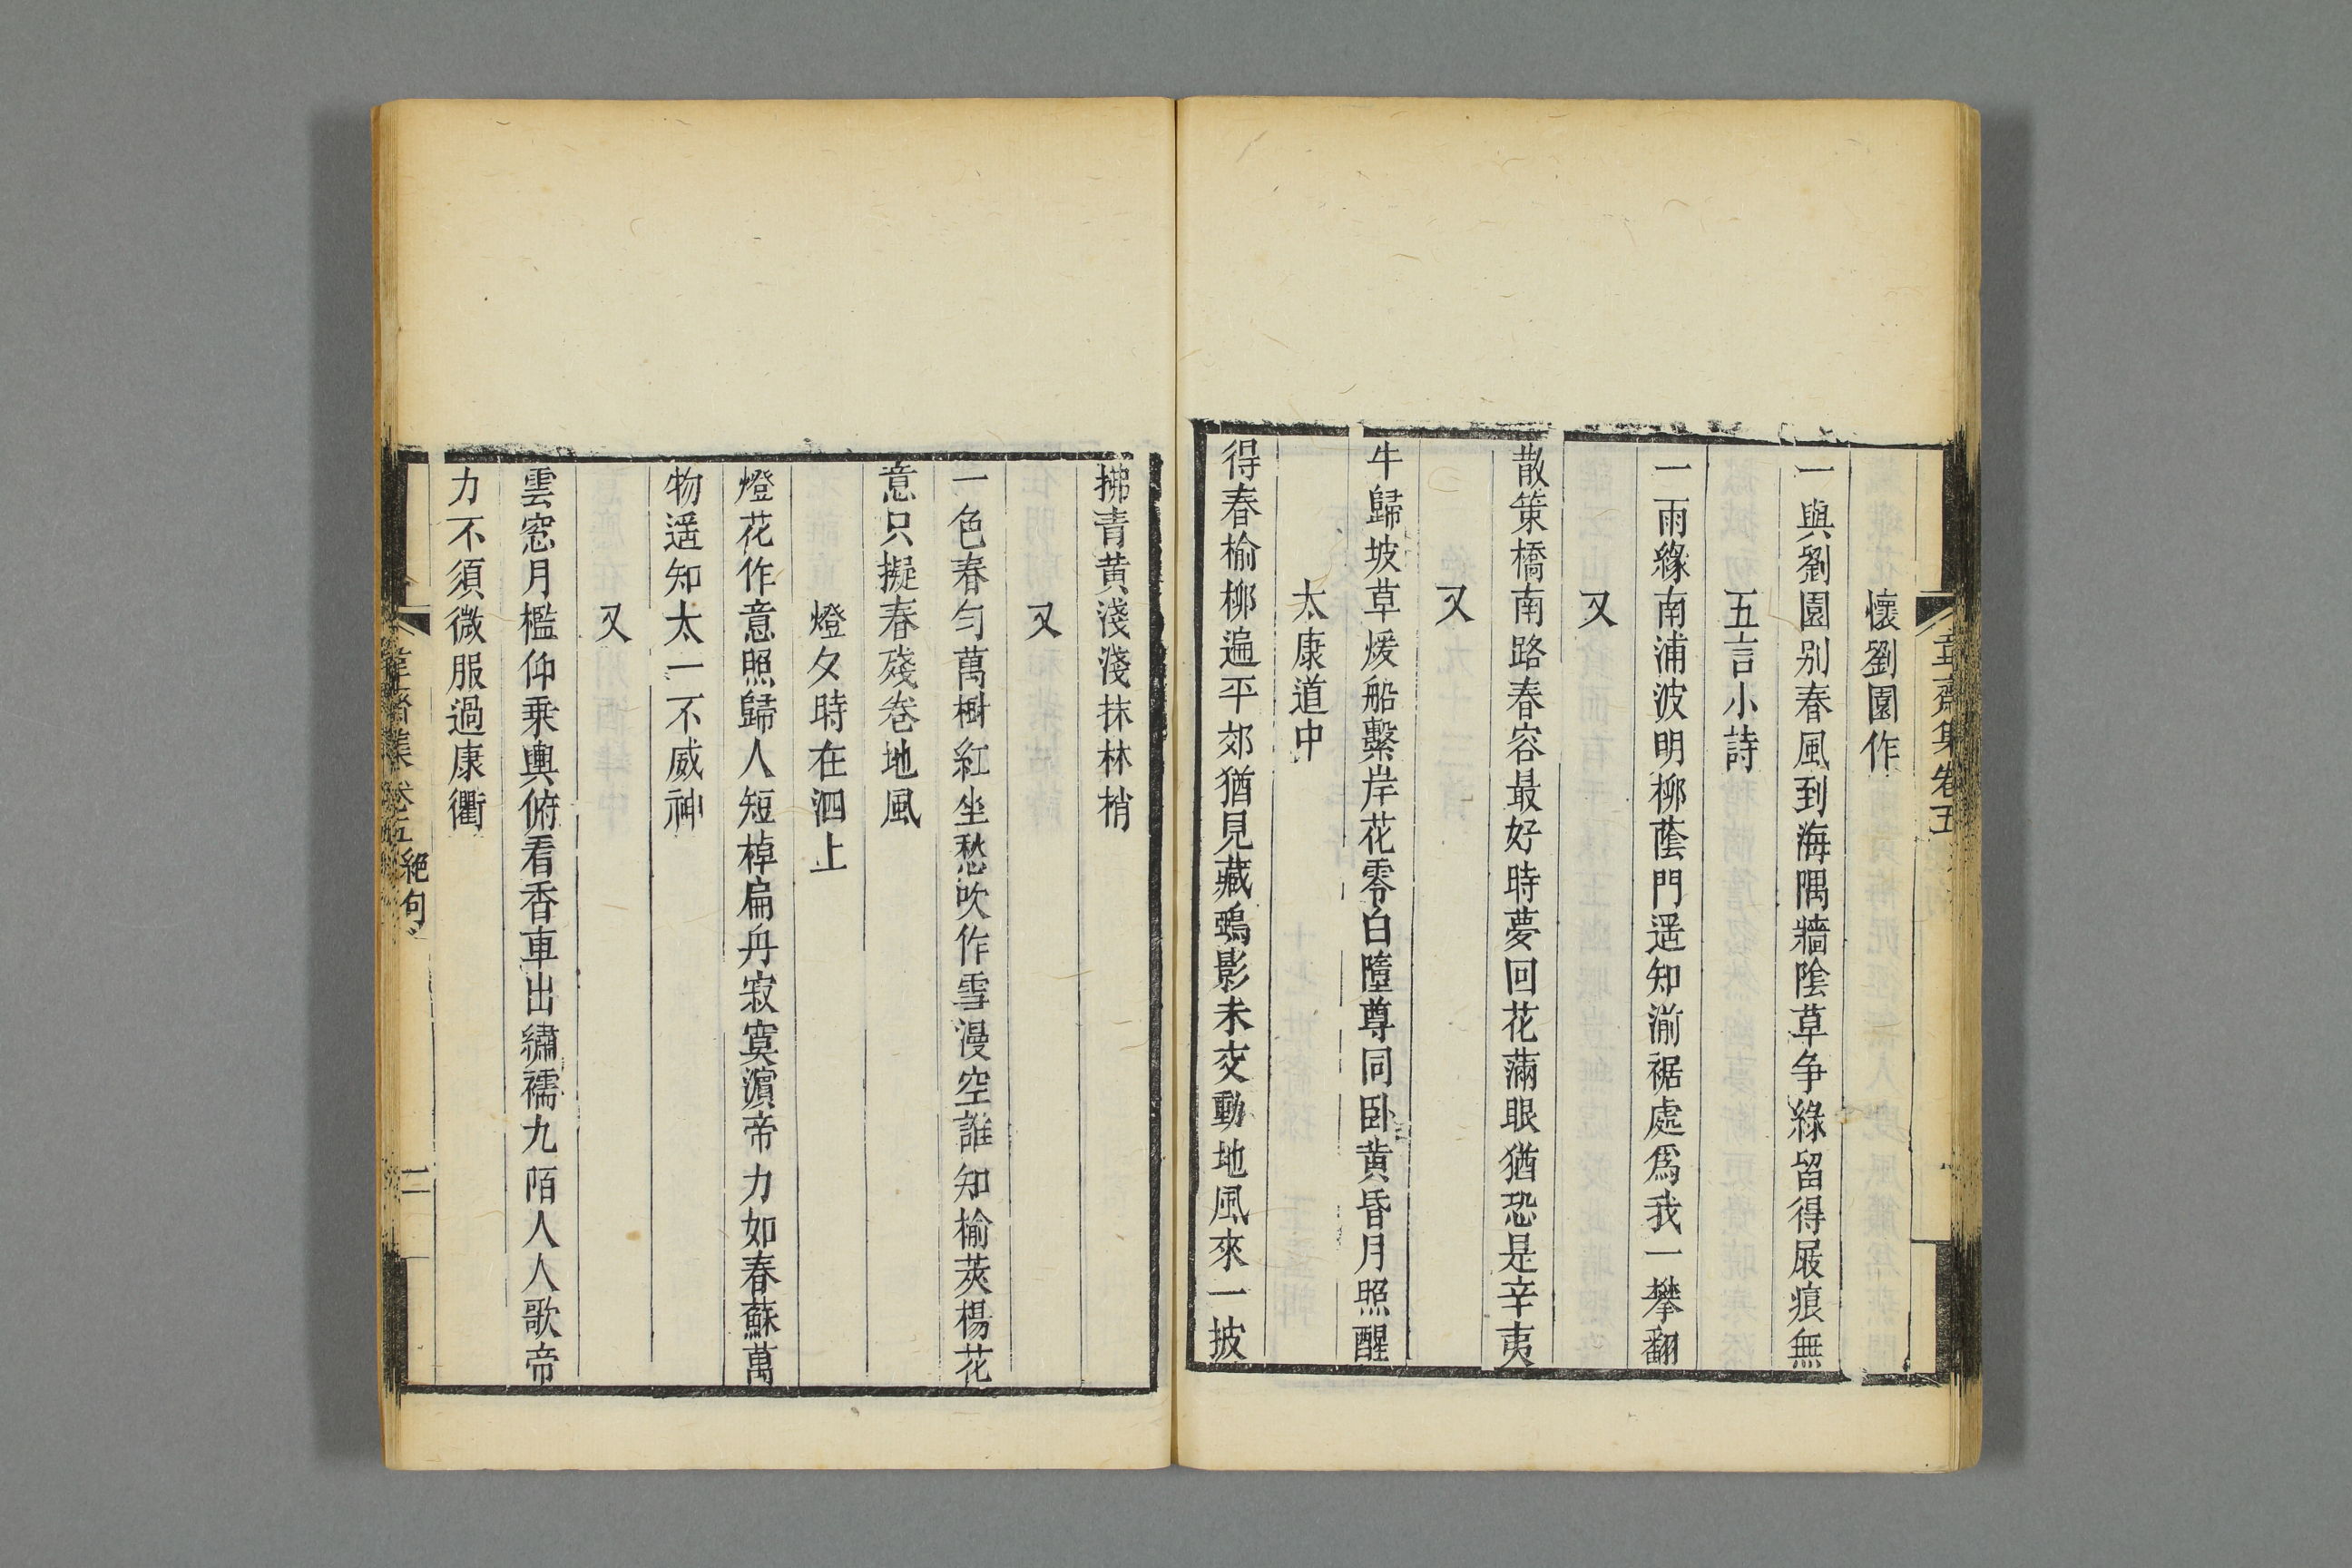 韋齋集卷五
懷劉園作
一與劉園别春風到海隅牆陰草争綠留得屐痕無
五言小詩
一雨緣南浦波明柳蔭門遥知湔裾處爲我一攀翻
又
散策橋南路春容最好時夢回花滿眼猶恐是辛夷
又
牛歸坡草煖船繫岸花零白墮尊同卧黄昏月照醒
太康道中
得春榆柳遍平郊猶見藏鵶影未交動地風來一披
拂青黄淺淺抺林梢
又
一色春勻萬樹紅坐愁吹作雪漫空誰知榆莢楊花
意只擬春殘卷地風
燈夕時在泗上
燈花作意照歸人短棹扁舟寂寞濵帝力如春蘇萬
物遥知太一不威神
又
雲窓月檻仰乗輿俯看香車出繡襦九陌人人歌帝
力不須微服過康衢
韋齋集 卷五 絶句 二